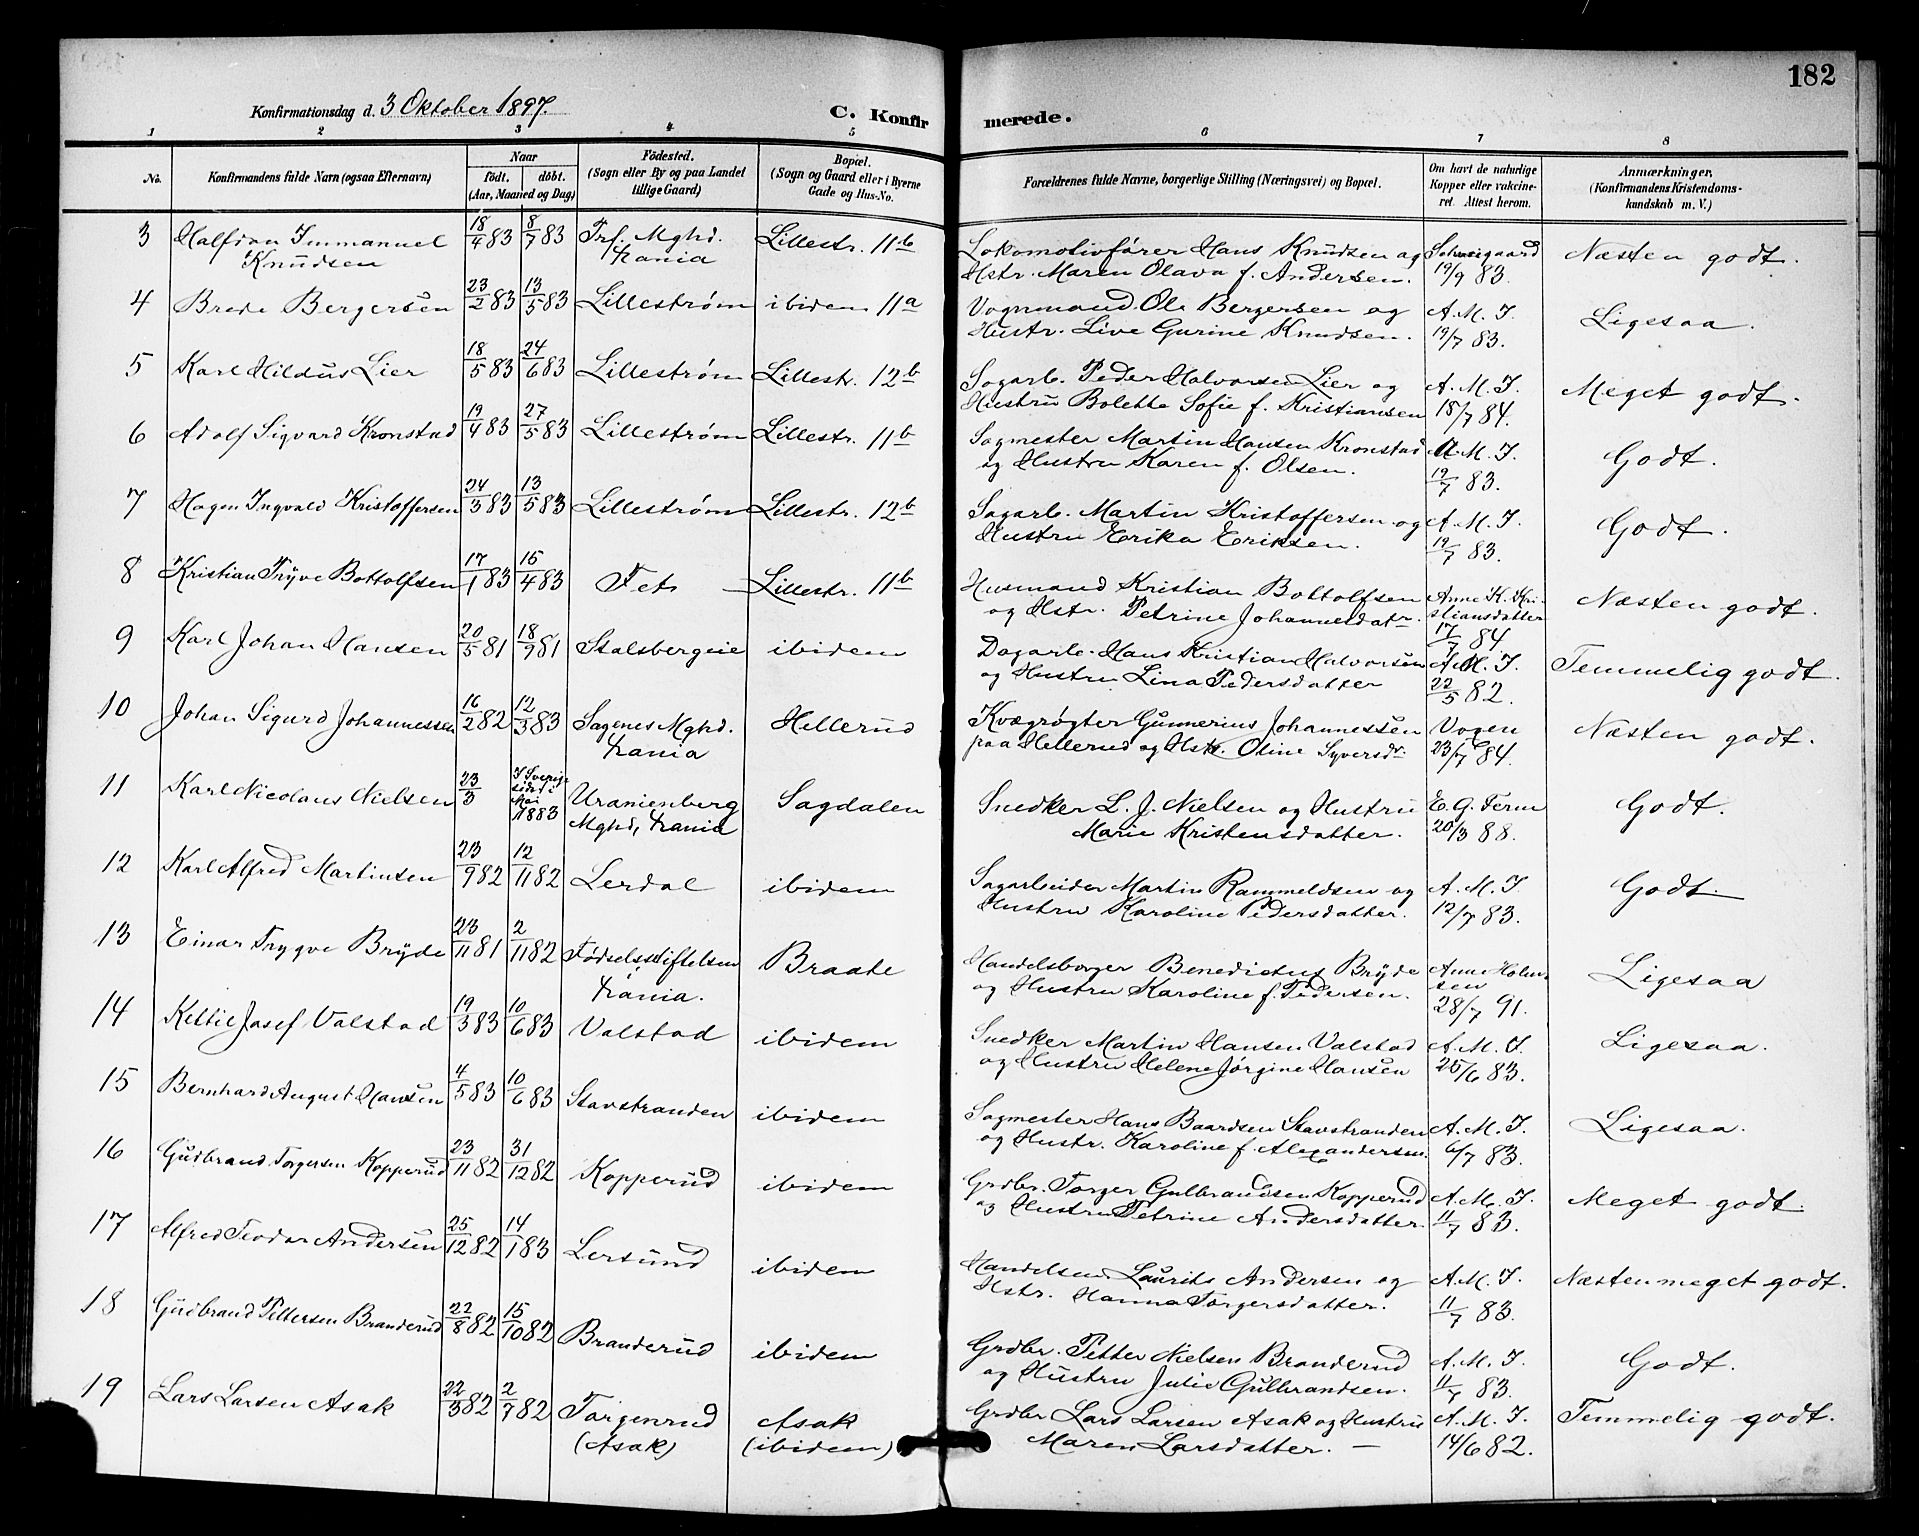 182
Konfirmationsdag d. 3 Oktober 1897.
C. Konfirmerede.
1 2 3 4 5 6 7 8
No.
Konfirmandens fulde Navn (ogsaa Efternavn)
Naar
födt. döbt.
(Aar, Maaned og Dag)
Födested.
(Sogn eller By og paa Landet
tillige Gaard)
Bopæl.
(Sogn og Gaard eller i Byerne
Gade og Hus-No.
Forældrenes fulde Navne, borgerlige Stilling (Næringsvei) og Bopæl.
Om havt de naturlige
Kopper eller vakcine-
ret. Attest herom.
Anmærkninger,
(Konfirmandens Kristendoms-
kundskab m. V.)
3 Halfdan Immanuel 18/4 83 8/7 83 Trf. Mghd. Lillestr. 11b Lokomotivfører Hans Knudsen og Schweigaard Næsten godt.
Knudsen Xrania Hstr. Maren Olava f. Andersen. 19/9 83.
4 Brede Bergersen 23/2 83 13/5 83 Lillestrøm ibidem 11a Vognmand Ole Bergersen og A. M. J. Ligesaa.
Hustr. Live Gurine Knudsen. 19/7 83.
5 Karl Hildus Lier 18/5 83 24/6 83 Lillestrøm Lillestr. 12b Sagarb. Peder Halvorsen Lier og A. M. J. Meget godt.
Hustru Bolette Sofie f. Kristiansen 18/7 84.
6 Adolf Sigvard Kronstad 19/4 83 27/5 83 Lillestrøm Lillestr. 11b Sagmester Martin Hansen Kronstad A. M. J. Godt.
og Hustru Karen f. Olsen. 19/7 83.
7 Hagen Ingvald Kristoffersen 24/3 83 13/5 83 Lillestrøm Lillestr. 12b Sagarb. Martin Kristoffersen og A. M. J. Godt.
Hustru Erika Eriksen. 19/7 83.
8 Kristian Tryve Bottolfsen 17/1 83 15/4 83 Fet Lillestr. 11b Husmand Kristian Bottolfsen Anne K. Kri- Næsten godt.
og Hstr. Petrine Johannesdatr. stiansdatter
17/7 84.
9 Karl Johan Hansen 20/5 81 18/9 81 Stalsbergeie ibidem Dagarb. Hans Kristian Halvorsen A. M. J. Temmelig godt.
og Hustru Lina Pedersdatter 22/5 82.
10 Johan Sigurd Johannessen 16/2 82 12/3 83 Sagenes Mghd. Hellerud Kvægrøgter Gunnerius Johannessen Vogen Næsten godt.
Xrania paa Hellerud og Hstr. Oline Syversdr. 23/7 84.
11 Karl Nicolaus Nielsen 23/3 I Sverig- Uranienberg Sagdalen Snedker L. J. Nielsen og Hustru E. G. Ferm Godt.
Mai 1883 Mghd, Xrania Marie Kristensdatter. 20/3 88.
12 Karl Alfred Martinsen 23/9 82 12/11 82 Lerdal ibidem Sagarbeider Martin Rammeldsen og A. M. J. Godt.
Hustru Karoline Pedersdatter. 12/7 83.
13 Einar Trygve Bryde 23/11 81 2/11 82 Fødselsstiftelsen Braate Handelsborger Benedictus Bryde Anne Holm- Ligesaa
Xrania. og Hustru Karoline f. Pedersen. sen
28/7 91.
14 Kettil Josef Valstad 19/3 83 10/6 83 Valstad ibidem Snedker Martin Hansen Valstad A. M. J. Ligesaa.
og Hustru Helene Jørgine Hansen 25/6 83.
15 Bernhard August Hansen 4/5 83 10/6 83 Stavstranden ibidem Sagmester Hans Baardsen Stavstranden A. M. J. Ligesaa.
og Hustr. Karoline f. Alexandersen. 6/7 83.
16 Gudbrand Torgersen Kopperud 23/11 82 31/12 82 Kopperud ibidem Grdbr. Torger Gulbrandsen Kopperud A. M. J. Meget godt.
og Hustru Petrine Andersdatter. 11/7 83.
17 Alfred Teodor Andersen 25/12 82 14/1 83 Lersund ibidem Handelsm. Laurits Andersen og A. M. J. Næsten meget godt.
Hstr. Hanna Torgersdatter. 11/7 83.
18 Gudbrand Pettersen Branderud 22/8 82 15/10 82 Branderud ibidem Grdbr. Petter Nielsen Branderud A. M. J. Godt.
og Hustru Julie Gulbrandsen. 11/7 83.
19 Lars Larsen Asak 22/3 82 2/7 82 Torgenrud Asak Grdbr Lars Larsen Asak og Hustru A. M. J. Temmelig godt.
(Asak) (ibidem) Maren Larsdatter. — 14/6 82.